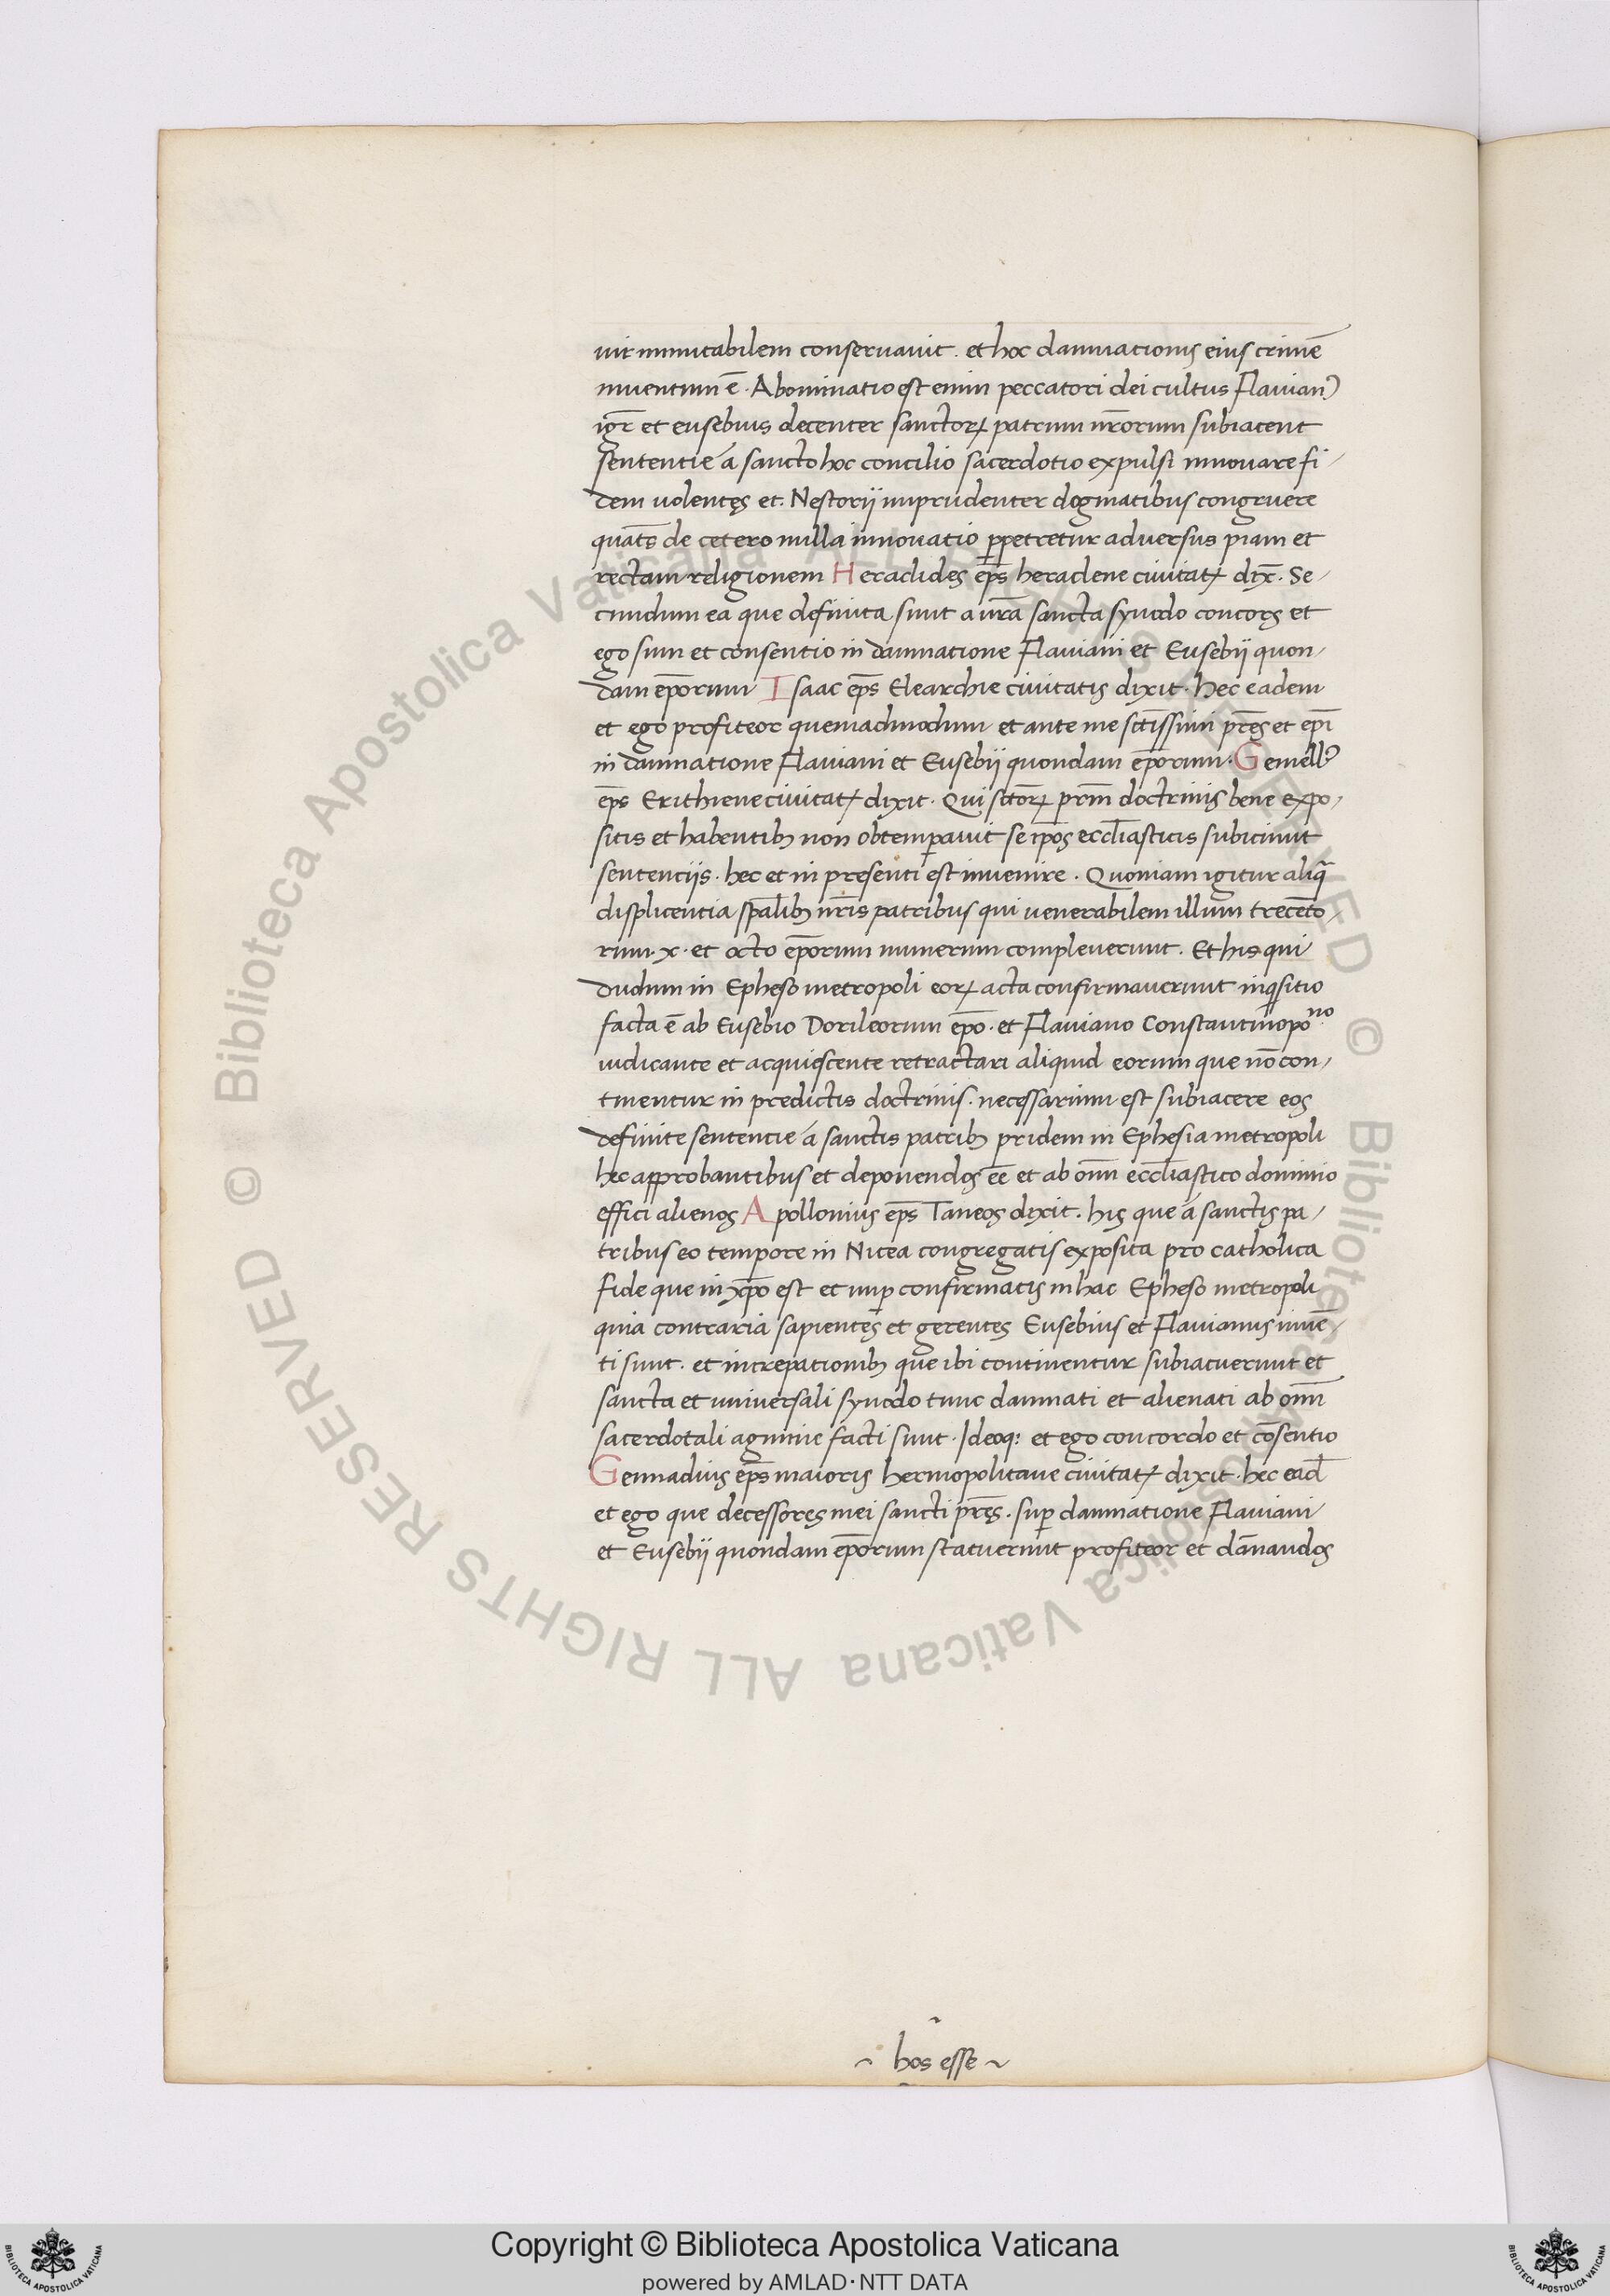 uit inmutabilem conseruauit. et hoc damnationis eius crimē
inuentum ē. Abominatio est enim peccatori dei cultus Flauianꝰ
igr̄ et eusebius decenter sanctoꝝ patrum nr̄orum subiacent
sententie á sancto hoc concilio sacerdotio expulsi innouare fi-
dem uolentes et. Nestorii imprudenter dogmatibus congruere
quat̄s de cetero nulla innouatio ꝑpetretur adversus piam et
rectam religionem Heraclides ep̄s heraclene ciuitatꝭ dix̄. Se-
cundum ea que definita sunt a ur̄a sancta synodo concors et
ego sum et consentio in damnatione Flauiani et Eusebij quon-
dam ep̄orum Isaac ep̄s Elearchie ciuitatis dixit. hec eadem
et ego profiteor quemadmodum et ante me sct̄issimi pr̄es et ep̄i
in damnatione Flauiani et Eusebij quondam ep̄orum. Gemellꝰ
ep̄s Erithiene ciuitatꝭ dixit. Qui sct̄oꝝ pr̄m doctrinis bene expo-
sitis et habentibꝫ non obtemꝑauit se ip̄os eccl̄iasticis subiciunt
sentenciis. hec et in presenti est invenire. Quoniam igitur aliq̄
displicentia sp̄alibꝫ nr̄is patribus qui uenerabilem illum trecēto-
rum. x. et octo ep̄orum numerum compleuerunt. Et his qui
dudum in Epheso metropoli eoꝝ acta confirmauerunt inq̇sitio
facta ē ab Eusebio Dorileorum ep̄o. et Flauiano Constantinopoⁿᵒ
iudicante et acquiescente retractari aliquid eorum que nō con-
tinentur in predictis doctrinis. necessarium est subiacere eos
definite sentencie á sanctis patribꝫ pridem in Ephesia metropoli
hec approbantibus et deponendos eē et ab om̄i eccl̄iastico dominio
effici alienos Apollonius ep̄s Taneos dixit. his que á sanctis pa-
tribus eo tempore in Nicea congregatis exposita pro catholica
fide que in xp̄o est et nuꝑ confirmatis in hac Epheso metropoli
quia contraria sapientes et gerentes Eusebius et Flauianus inuē-
ti sunt. et increpationibꝫ que ibi continentur subiacuerunt et
sancta et universali synodo tunc damnati et alienati ab om̄i
sacerdotali agmine facti sunt. Ideoq: et ego concordo et cōsentio
Gennadius ep̄s maioris hermopolitane ciuitatꝭ dixit. hec ead̄
et ego que decessores mei sancti pr̄es. suꝑ damnatione Flauiani
et Eusebij quondam ep̄orum statuerunt profiteor et dānandos
~ hos esse ~
© Biblioteca Apostolica Vaticana ALL RIGHTS RESERVED © Biblioteca Apostolica Vaticana ALL RIGHTS RESERVED
Copyright © Biblioteca Apostolica Vaticana
powered by AMLAD·NTT DATA
BIBLIOTECA APOSTOLICA VATICANA
BIBLIOTECA APOSTOLICA VATICANA